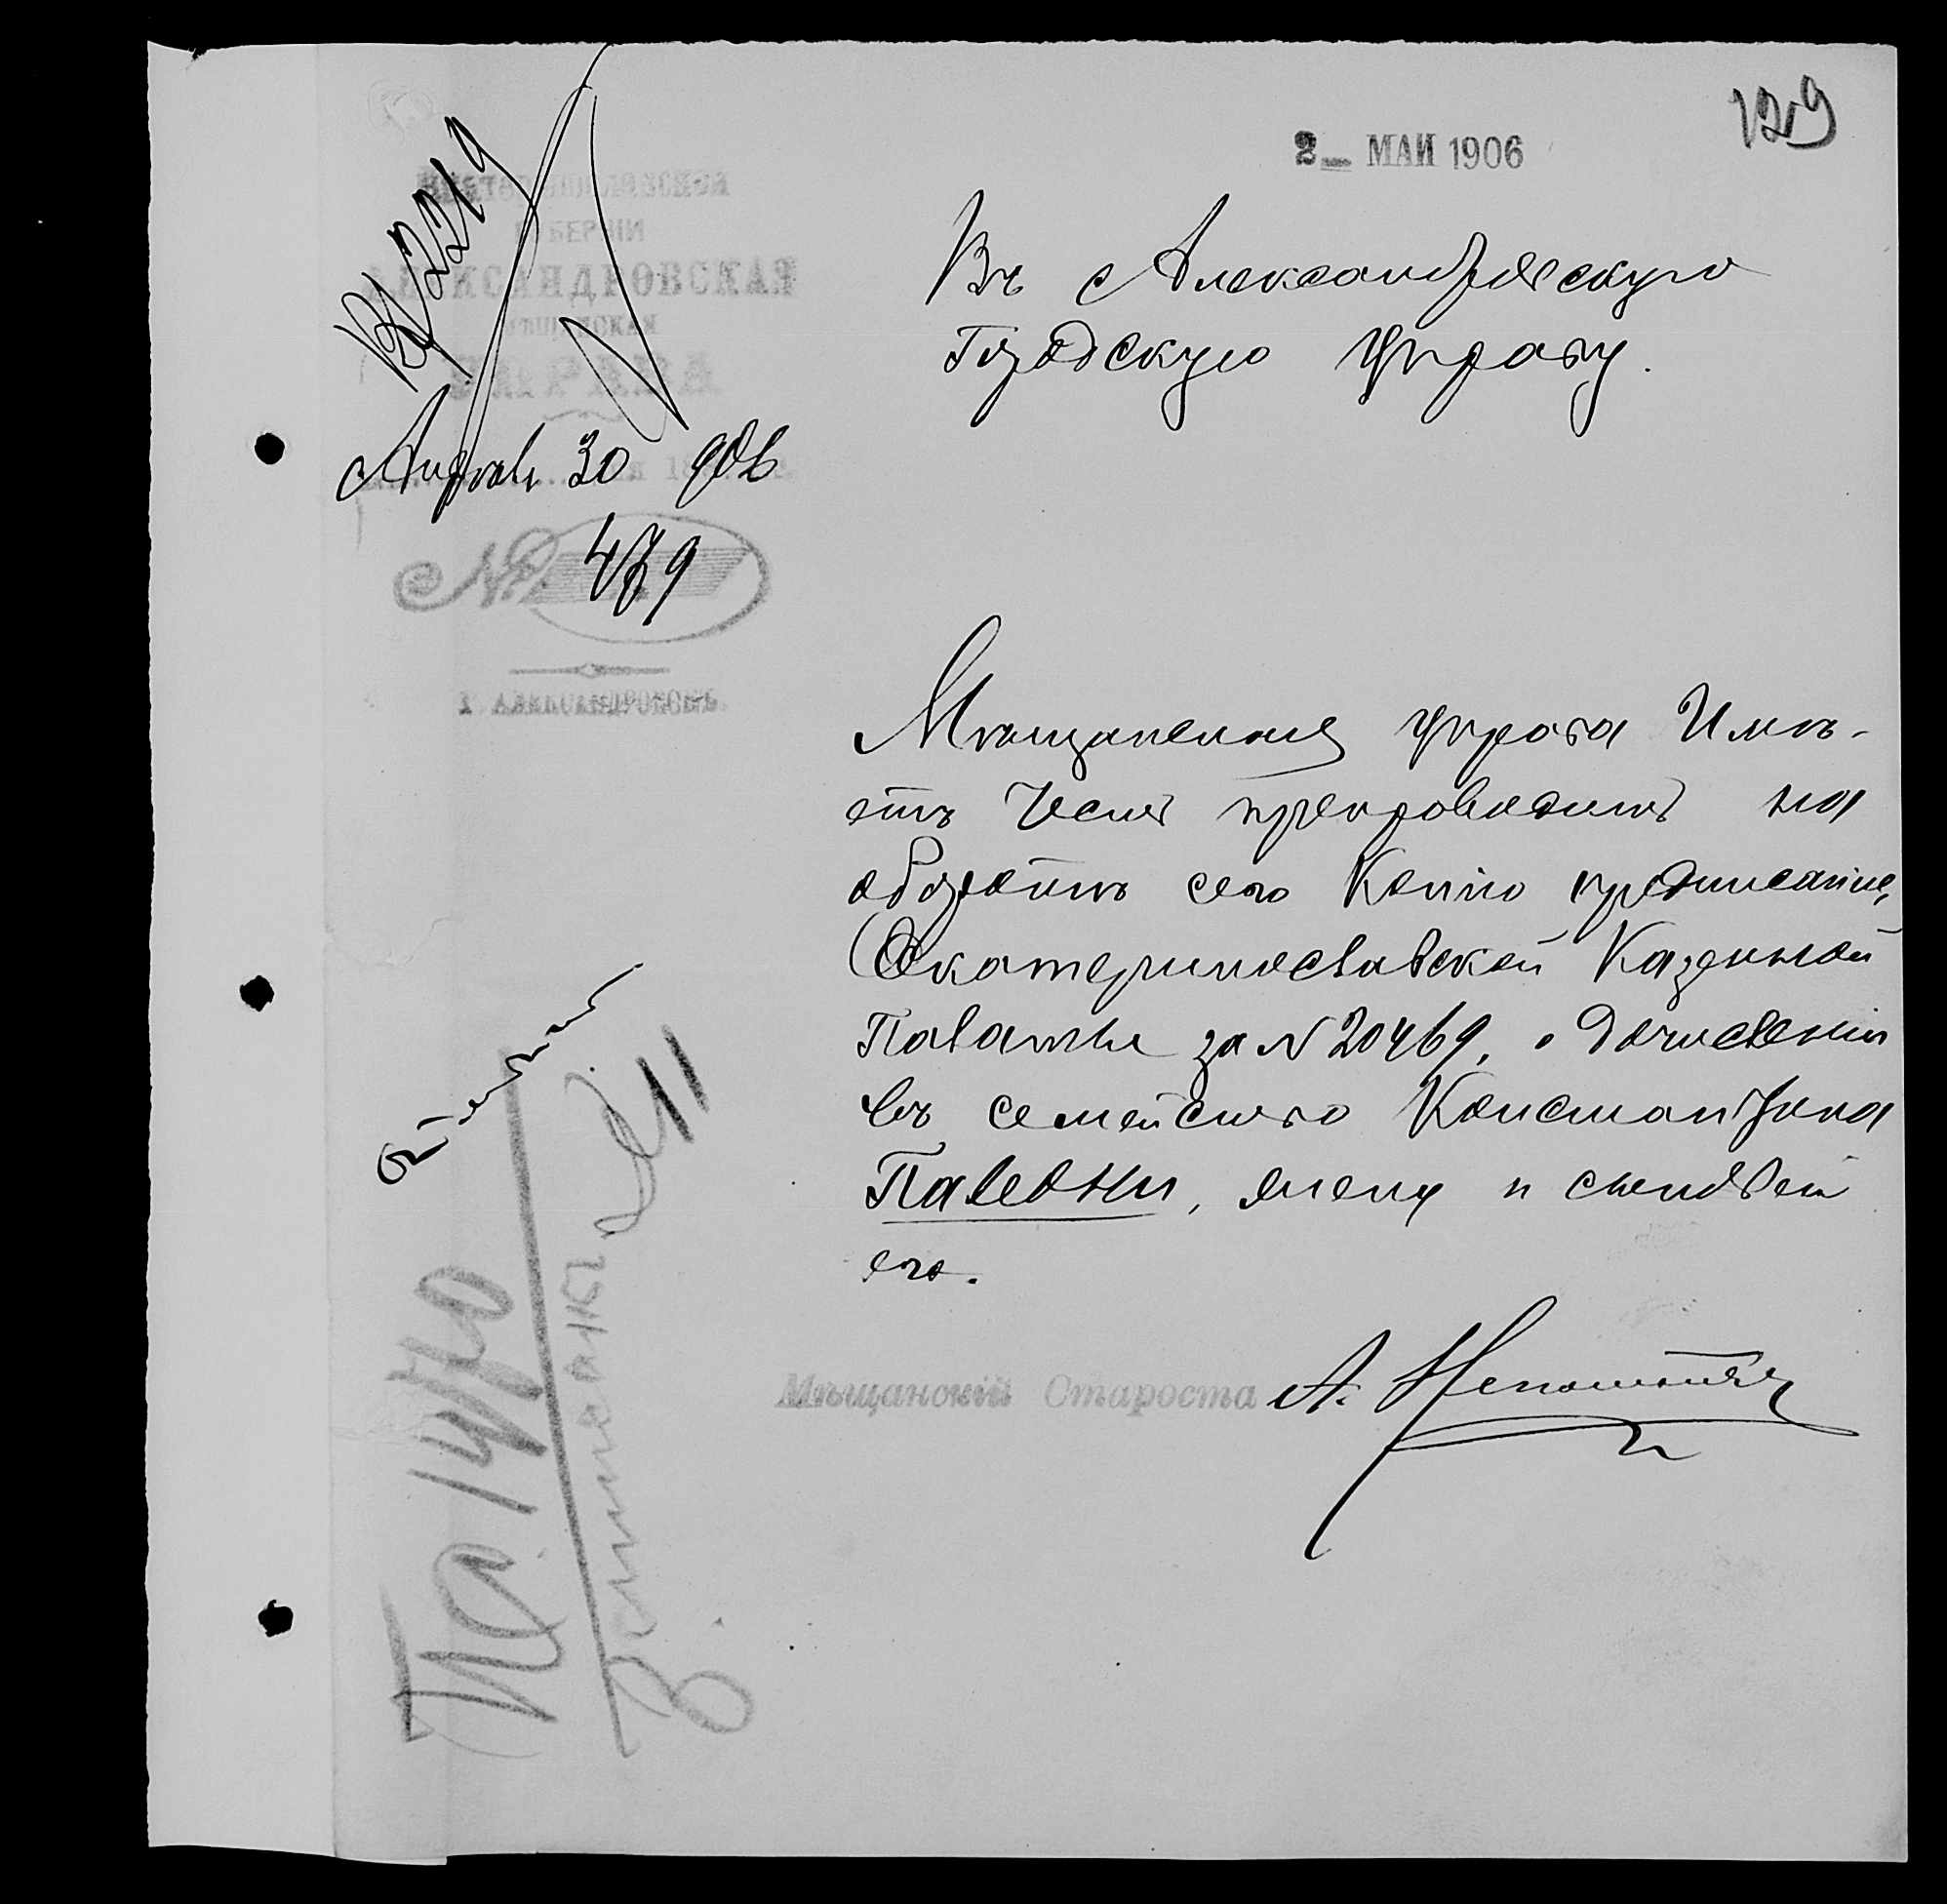 129
2 МАИ 1906
Вх 2219
Екатеринославской
ГУБЕРНІИ
АЛЕКСАНДРОВСКАЯ
МѢЩАНСКАЯ
УПРАВА
Апрѣля 30 906
№ 479
Г. АЛЕКСАНДРОВСКЪ
Въ Александровскую
Городскую Управу.
Мѣщанская управа Имѣ-
етъ Честь препроводить на
оборотѣ сего Копію предписанія,
Екатеринославской Казенной
Палаты за № 20469, о дочисленіи
въ семейство Константина
Павлоки, жену и сыновей
его.
Мѣщанскій Староста А.